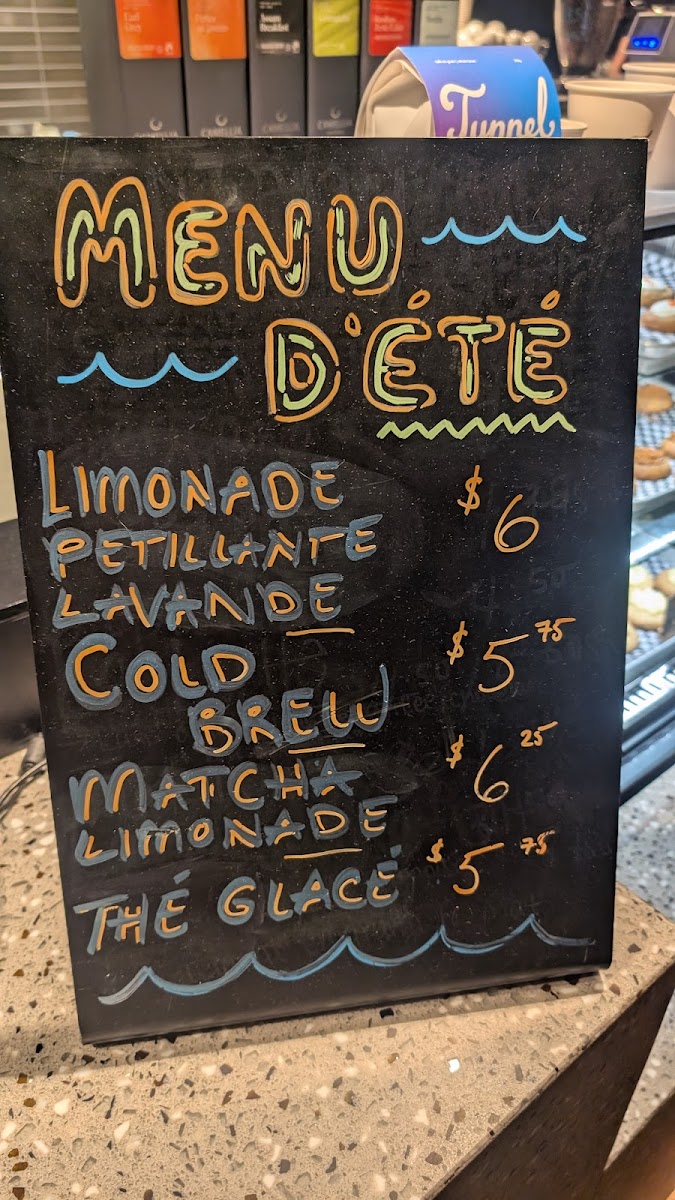 Earl
Grey
CAMELLIA
CAMELLIA
Tunnel
MENU
D'ÉTÉ
LIMONADE
PETILLANTE
LAVANDE
$6
COLD
BREW
$5 75
MATCHA
LIMONADE
$6 25
THÉ GLACÉ
$5 75